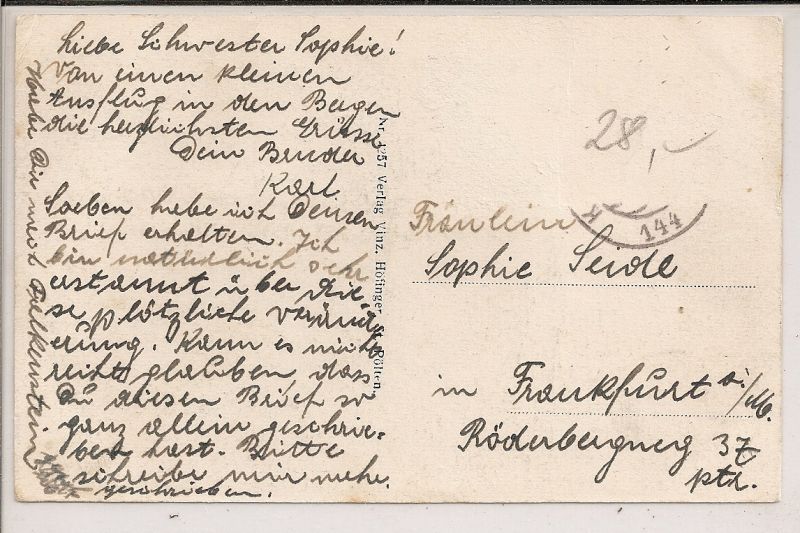 Liebe Schwester Sophie!
Von einen kleinen
Ausflug in den Bergen
die herzlichsten Grüsse
Dein Bruder
Karl
Soeben habe ich Deinen
Brief erhalten. Ich
bin natürlich sehr
erstaunt über die-
se plötzliche veränd
erung. Kann es nicht
recht glauben dass
Du diesen Brief so
ganz allein geschrie-
ben hast. Bitte
schreibe mir mehr.
geschrieben.
Habe Dir nach Falkenstein
Nr. 1257 Verlag Vinz. Höfinger, St. Pölten.
28,-
144
Fräulein
Sophie Seidl
in Frankfurt a/M.
Röderbergweg 37
ptr.